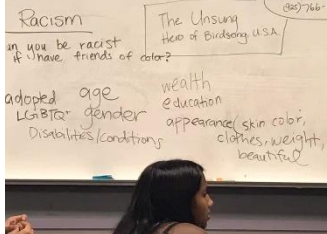 Racism
an you be racist
if I have friends of color?
The Unsung
Hero of Birdsong, U.S.A.
(925)-766-
adopted age
LGBTQ+ gender
Disabilities/conditions
wealth
education
appearance( skin color,
clothes, weight,
beautiful